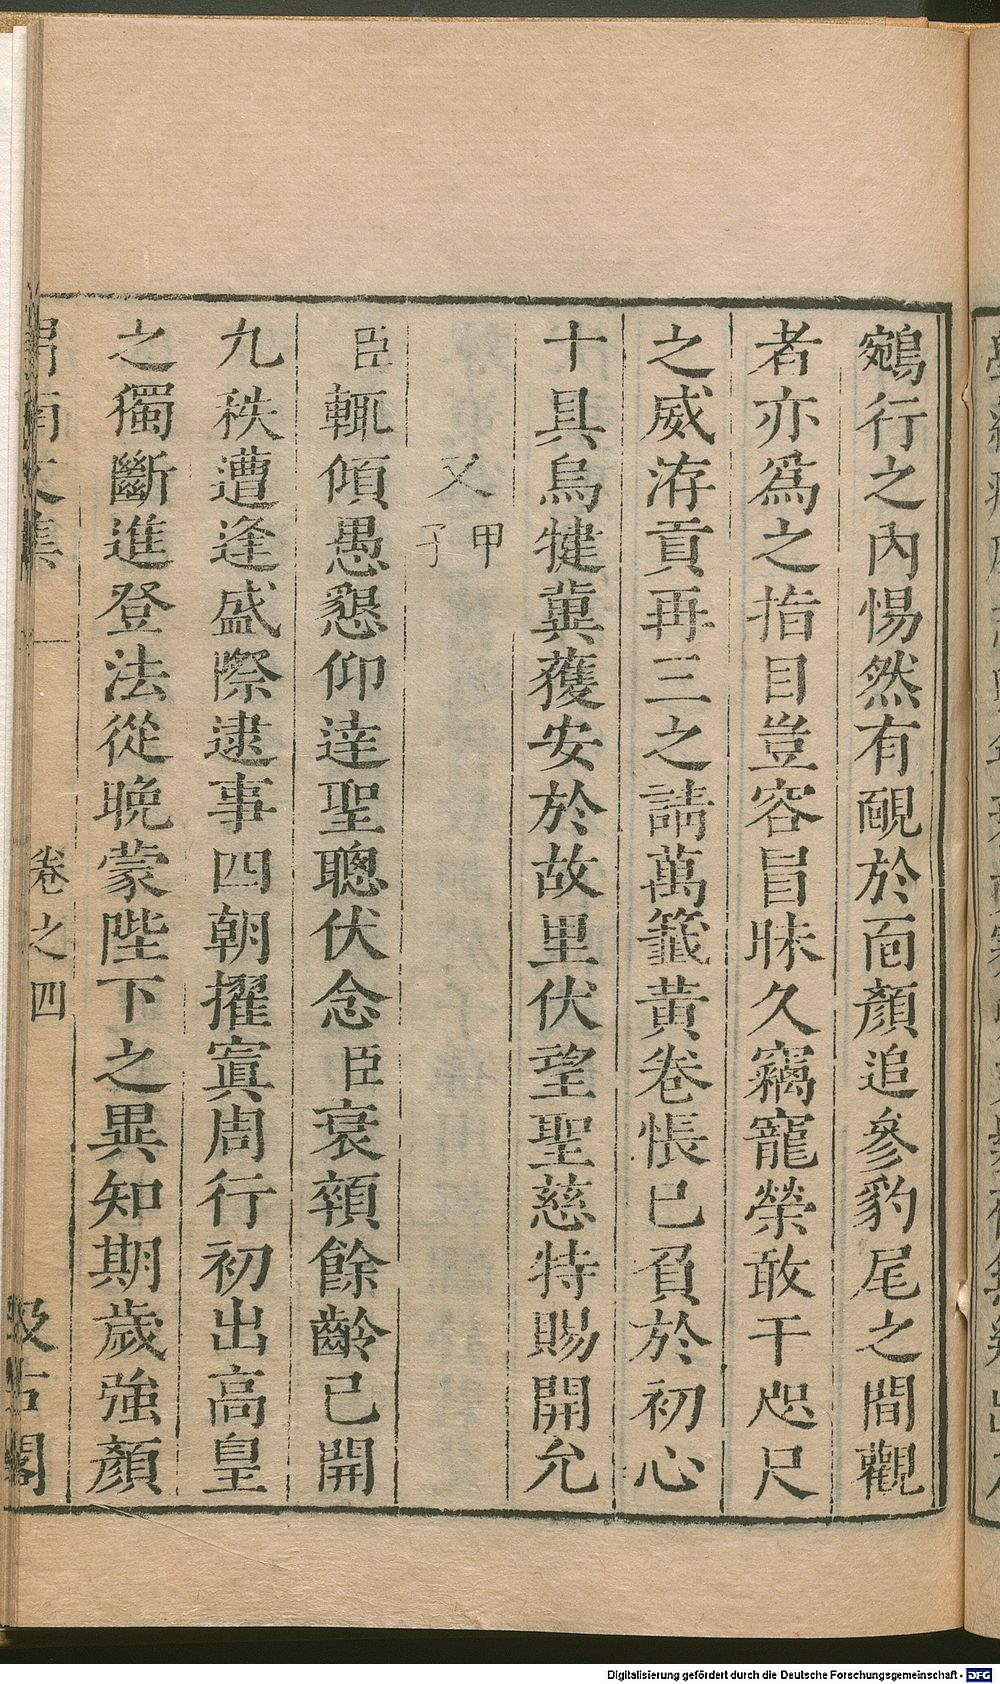 鵷行之內惕然有靦於面顏追參豹尾之間觀
者亦爲之指目豈容冒昧久竊寵榮敢干咫尺
之威洊貢再三之請萬籤黃卷悵已負於初心
十具烏犍冀獲安於故里伏望聖慈特賜開允
又甲子
臣輒傾愚懇仰達聖聰伏念臣衰顇餘齡已開
九秩遭逢盛際逮事四朝擢寘周行初出高皇
之獨斷進登法從晚蒙陛下之異知期歲強顏
渭南文集 卷之四 汲古閣
Digitalisierung gefördert durch die Deutsche Forschungsgemeinschaft - DFG